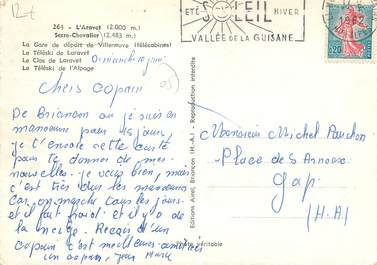 264 - L'Aravet (2.000 m.)
Serre-Chevalier (2.483 m.)
La Gare de départ de Villeneuve (Télécabines)
Le Téléski de Laravet
Le Clos de Laravet
Le Téléski de l'Alpage
Dimanche 10 juin
ÉTÉ SOLEIL HIVER
VALLÉE DE LA GUISANE
1962
0,20
Chers Copain
(05)
De Briançon ou je suis en
manœuvre pour 15 jours,
je t'envoie cette carte
pour te donner de mes
nouvelles. je vais bien, mais
c'est très dur les manœuvres
car on marche tous les jours
et il fait froid et il y a de
la neige. Reçois d'un
copain c'est meilleures amitiés
un copain, Jean Marc
Editions Aimé, Briançon (H.-A.) - Reproduction interdite
Photo véritable
Monsieur Michel
Place de S
Gap
(H.A)